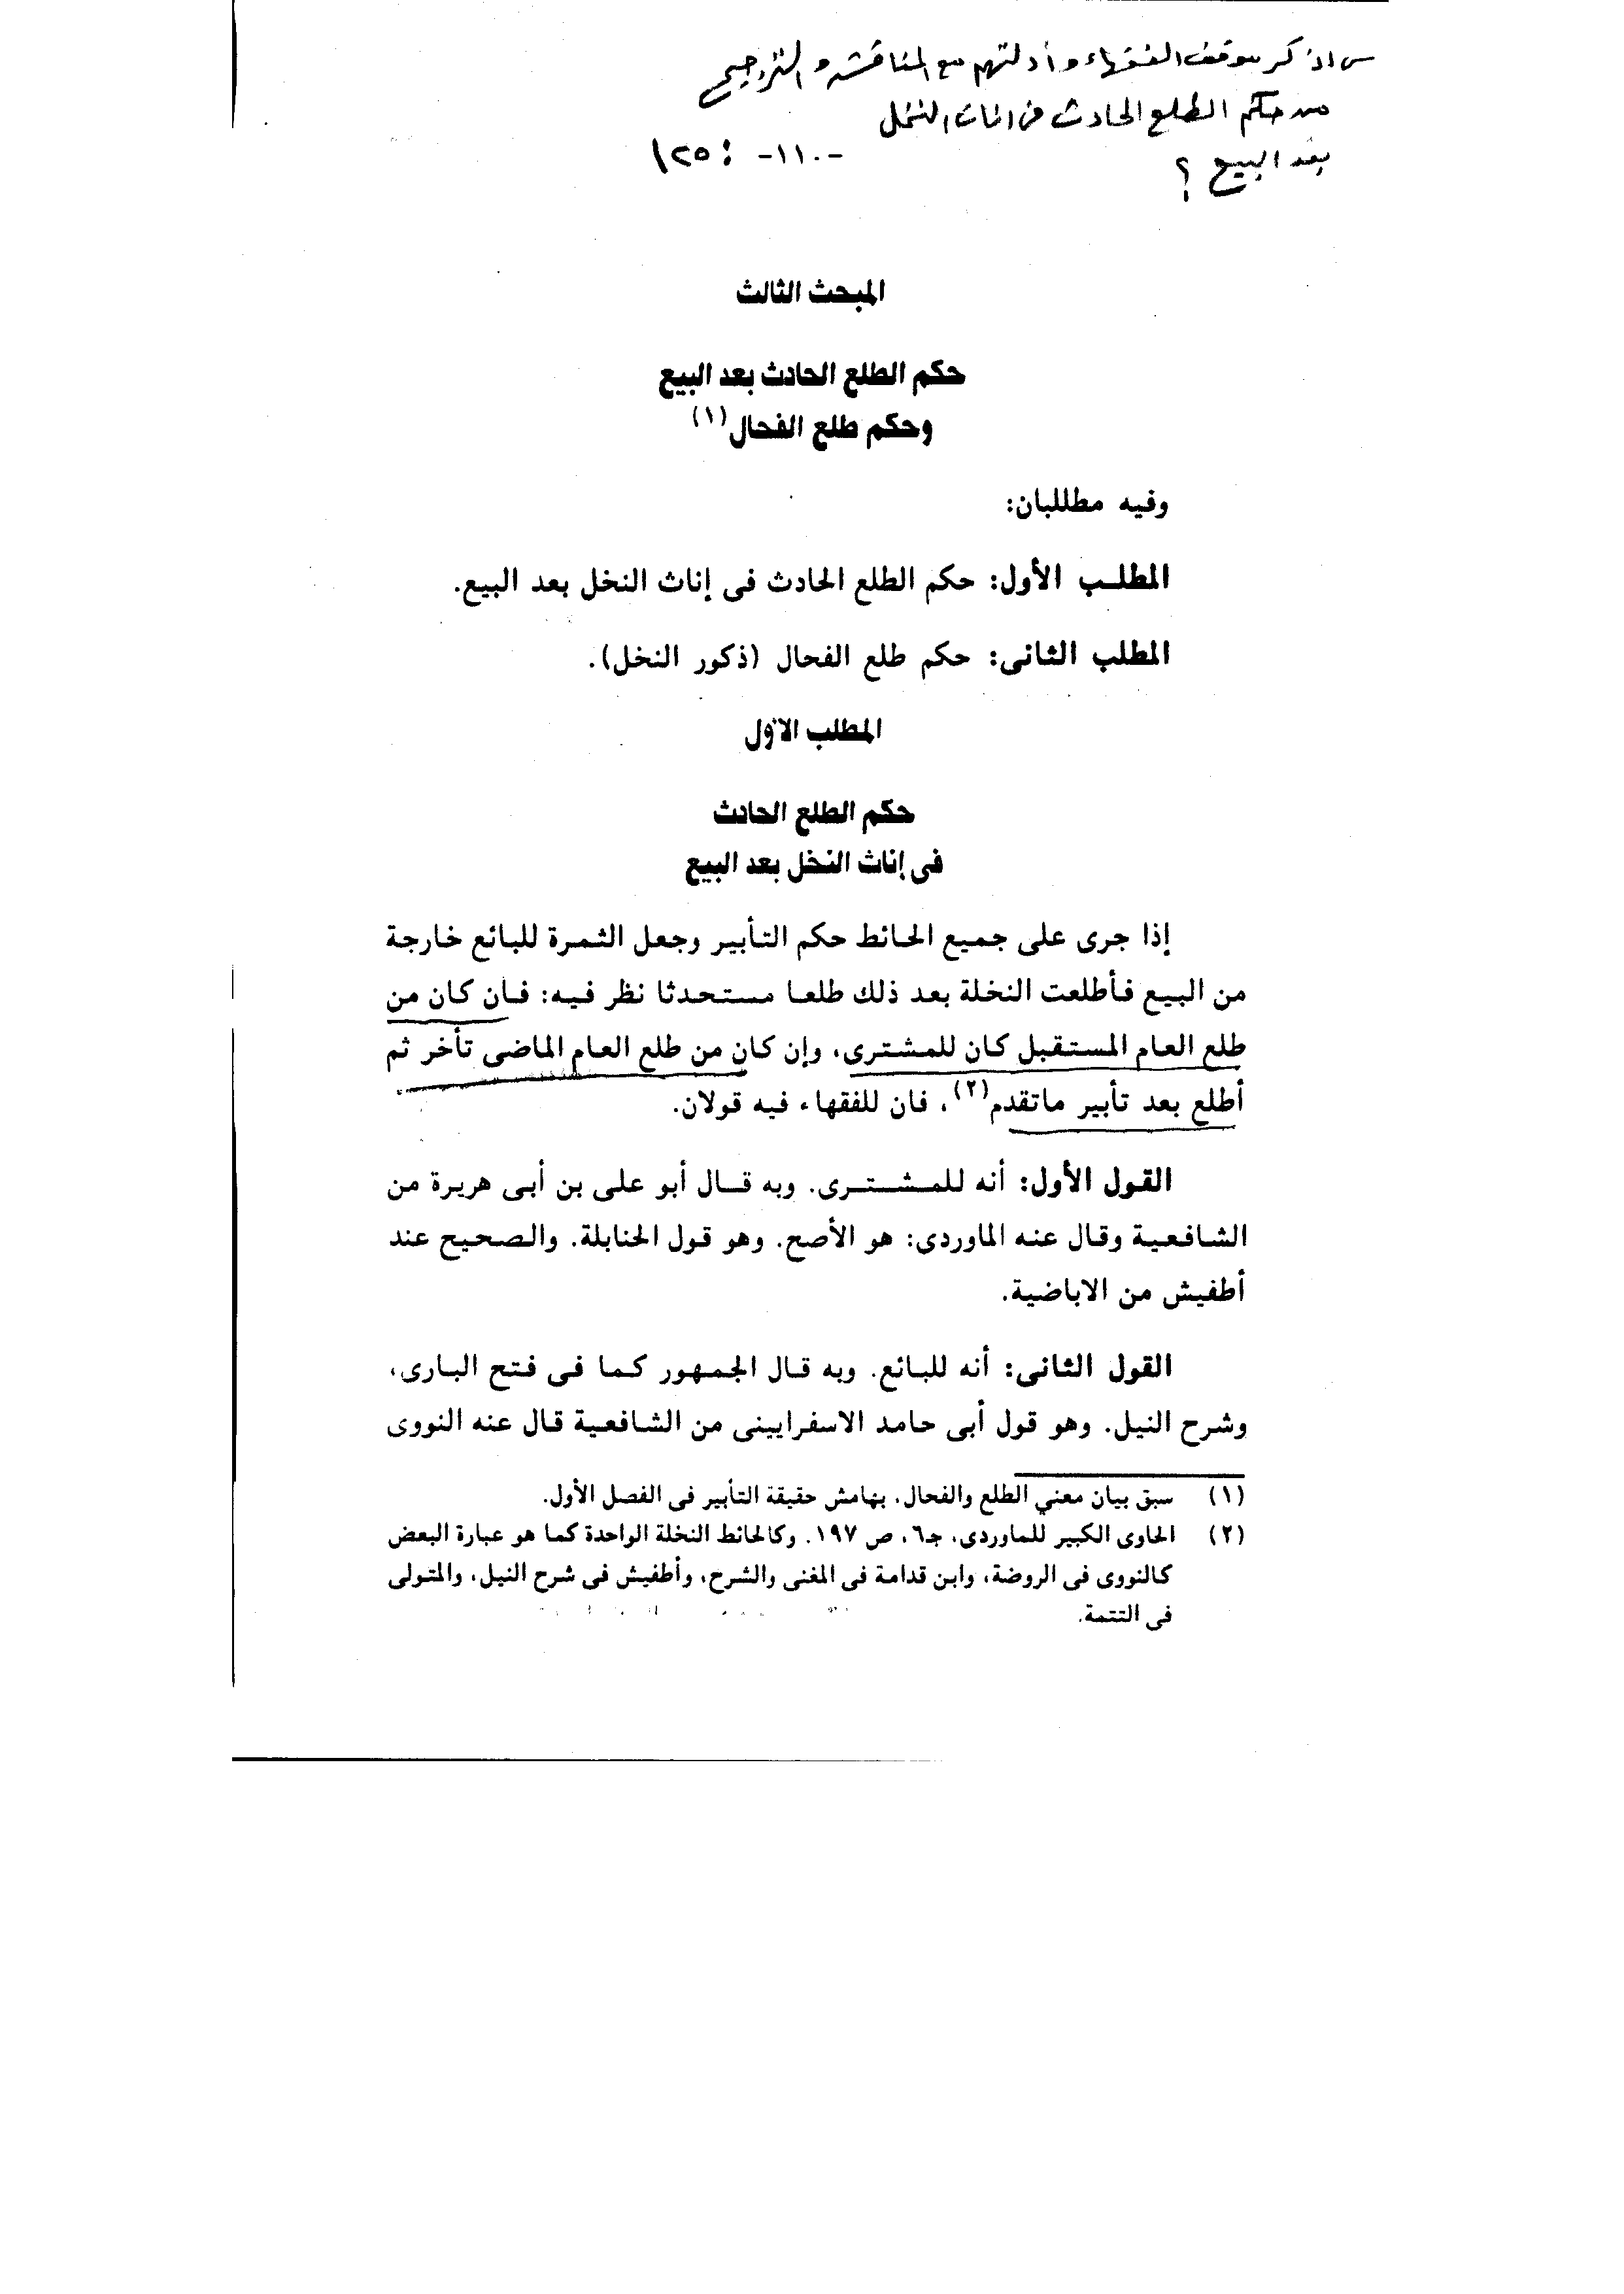 س اذكر موقف الفقهاء وأدلتهم مع المناقشة والترجيح
من حكم الطلع الحادث فى اناث النخل
بعد البيع ؟
-١١٠- : ١٢٥
المبحث الثالث
حكم الطلع الحادث بعد البيع
وحكم طلع الفحال(١)
وفيه مطللبان:
المطلب الأول: حكم الطلع الحادث فى إناث النخل بعد البيع.
المطلب الثانى: حكم طلع الفحال (ذكور النخل).
المطلب الأول
حكم الطلع الحادث
فى إناث النخل بعد البيع
إذا جرى على جميع الحائط حكم التأبير وجعل الثمرة للبائع خارجة
من البيع فأطلعت النخلة بعد ذلك طلعا مستحدثا نظر فيه: فان كان من
طلع العام المستقبل كان للمشترى، وإن كان من طلع العام الماضى تأخر ثم
أطلع بعد تأبير ماتقدم(٢)، فان للفقهاء فيه قولان.
القول الأول: أنه للمشترى. وبه قال أبو على بن أبى هريرة من
الشافعية وقال عنه الماوردى: هو الأصح. وهو قول الحنابلة. والصحيح عند
أطفيش من الاباضية.
القول الثانى: أنه للبائع. وبه قال الجمهور كما فى فتح البارى،
وشرح النيل. وهو قول أبى حامد الاسفرايينى من الشافعية قال عنه النووى
(١) سبق بيان معني الطلع والفحال. بهامش حقيقة التأبير فى الفصل الأول.
(٢) الحاوى الكبير للماوردى، جـ٦، ص ١٩٧. وكالحائط النخلة الواحدة كما هو عبارة البعض
كالنووى فى الروضة، وابن قدامة فى المغنى والشرح، وأطفيش فى شرح النيل، والمتولى
فى التتمة.